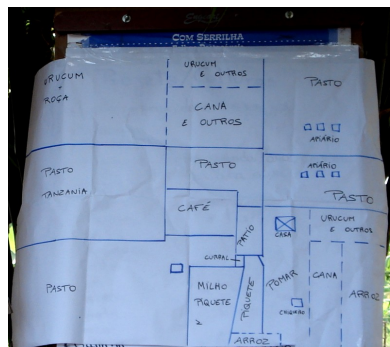 COM SERRILHA
URUCUM
ROÇA
URUCUM
E OUTROS
CANA
E OUTROS
PASTO
APIÁRIO
PASTO
TANZANIA
PASTO
APIÁRIO
PASTO
CAFÉ
PATIO
CASA
URUCUM
E OUTROS
CURRAL
PASTO
MILHO
PIQUETE
PIQUETE
POMAR
CANA
ARROZ
ARROZ